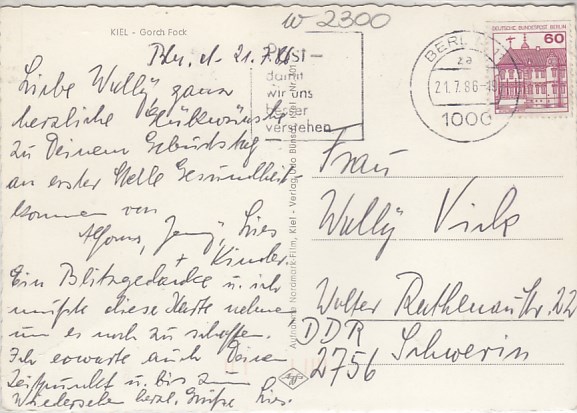 W 2300
KIEL - Gorch Fock
Bln, d. 21.7.86
Post -
damit
wir uns
besser
verstehen
BERLIN
za
21.7.86
1000
DEUTSCHE BUNDESPOST BERLIN
60
Liebe Wally ganz
herzliche Glückwünsche
zu Deinem Geburtstag
an erster Stelle Gesundheit-
kommen von
Alfons, Jenny, Lies
+ Kinder
Ein Blitzgedanke u. ich
mußte diese Karte nehmen
um es noch zu schaffen.
Ich erwarte auch Deinen
Zeitpunkt u. bis zum
Wiedersehen herzl. Grüße Lies.
Nordmark-Film, Kiel - Verlag
Frau
Wally Vick
Walter Rathenau Str. 22
DDR
2756 Schwerin